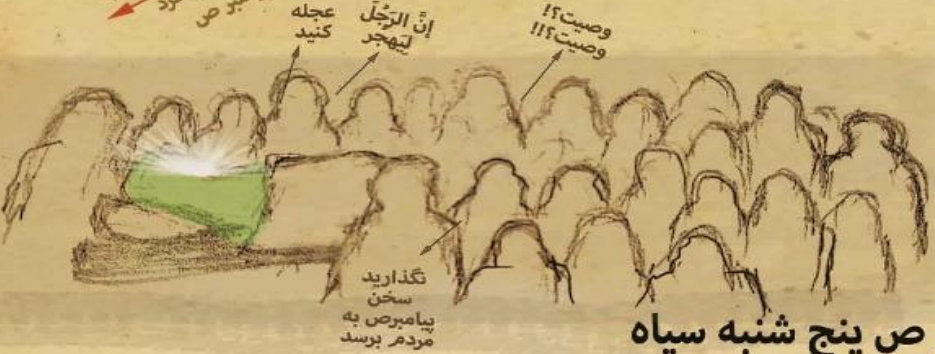 عجله
کنید
إنَّ الرَجُلَ
لیَهجر
وصیت؟!
وصیت؟!!
نگذارید
سخن
پیامبرص به
مردم برسد
ص پنج شنبه سیاه